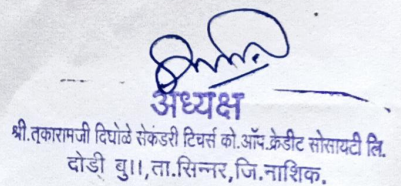 अध्यक्ष
श्री.तुकारामजी दिघोळे सेकंडरी टिचर्स को.ऑप.क्रेडीट सोसायटी लि.
दोडी बु।।,ता.सिन्नर,जि.नाशिक.